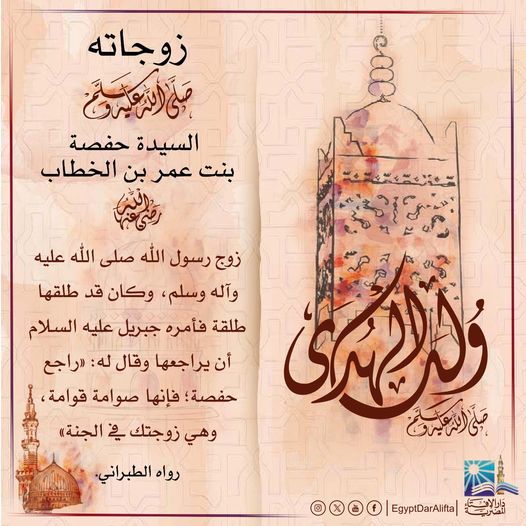 زوجاته
صلى الله عليه وسلم
السيدة حفصة
بنت عمر بن الخطاب
رضي الله عنها
زوج رسول الله صلى الله عليه
وآله وسلم، وكان قد طلقها
طلقة فأمره جبريل عليه السلام
أن يراجعها وقال له: «راجع
حفصة؛ فإنها صوامة قوامة،
وهي زوجتك في الجنة»
رواه الطبراني.
وُلد الهُدى
صلى الله عليه وسلم
EgyptDarAlifta
دار الإفتاء
المصرية